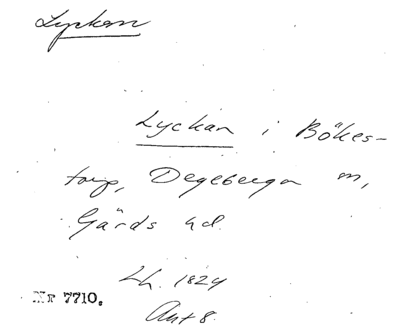 Lyckan
Lyckan i Bökes-
torp, Degeberga sn,
Gärds hd.
Lh. 1824
Akt 8.
Nr 7710.